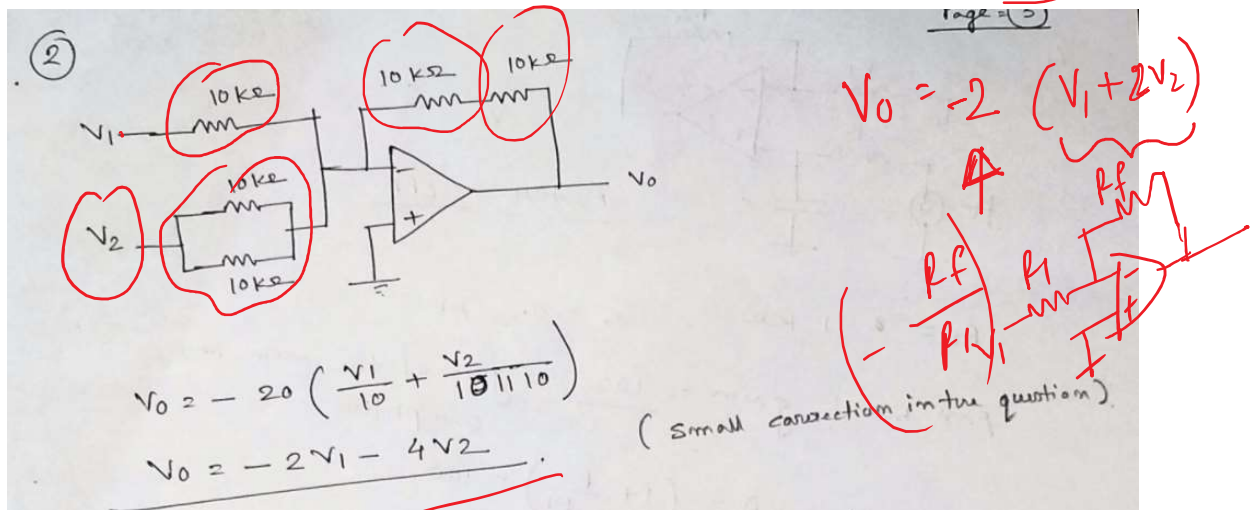 Page = (3)
②
10 kΩ
10 kΩ
10 kΩ
V1
10 kΩ
V2
10 kΩ
-
+
V0
V0 = -2 (V1 + 2V2)
Rf
Rf
R1
R1
V1
-
-
+
V0 = - 20 ( V1/10 + V2/10 11 10 )
V0 = - 2V1 - 4V2 .
( small correction in the question )